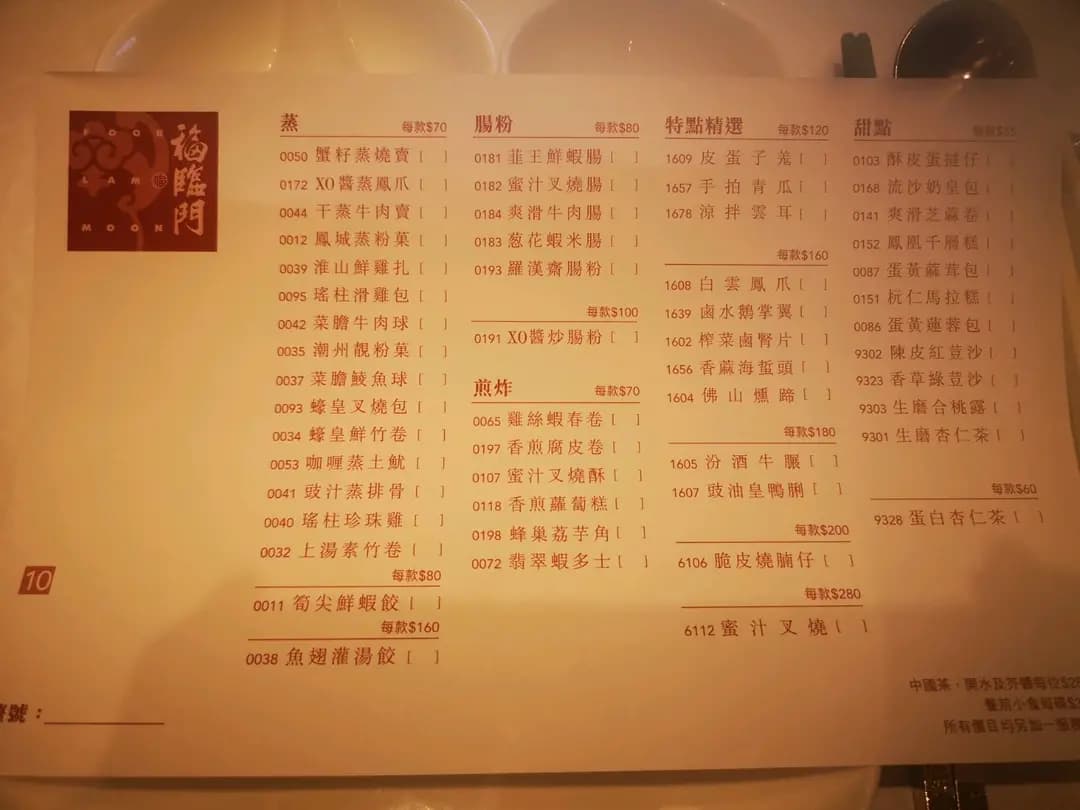 FOOK
LAM
MOON
福臨門
蒸 每款$70
0050 蟹籽蒸燒賣 [ ]
0172 XO醬蒸鳳爪 [ ]
0044 干蒸牛肉賣 [ ]
0012 鳳城蒸粉菓 [ ]
0039 淮山鮮雞扎 [ ]
0095 瑤柱滑雞包 [ ]
0042 菜膽牛肉球 [ ]
0035 潮州靚粉菓 [ ]
0037 菜膽鯪魚球 [ ]
0093 蠔皇叉燒包 [ ]
0034 蠔皇鮮竹卷 [ ]
0053 咖喱蒸土魷 [ ]
0041 豉汁蒸排骨 [ ]
0040 瑤柱珍珠雞 [ ]
0032 上湯素竹卷 [ ]
每款$80
0011 筍尖鮮蝦餃 [ ]
每款$160
0038 魚翅灌湯餃 [ ]
腸粉 每款$80
0181 韮王鮮蝦腸 [ ]
0182 蜜汁叉燒腸 [ ]
0184 爽滑牛肉腸 [ ]
0183 葱花蝦米腸 [ ]
0193 羅漢齋腸粉 [ ]
每款$100
0191 XO醬炒腸粉 [ ]
煎炸 每款$70
0065 雞絲蝦春卷 [ ]
0197 香煎腐皮卷 [ ]
0107 蜜汁叉燒酥 [ ]
0118 香煎蘿蔔糕 [ ]
0198 蜂巢荔芋角 [ ]
0072 翡翠蝦多士 [ ]
特點精選 每款$120
1609 皮蛋子羌 [ ]
1657 手拍青瓜 [ ]
1678 涼拌雲耳 [ ]
每款$160
1608 白雲鳳爪 [ ]
1639 鹵水鵝掌翼 [ ]
1602 榨菜鹵腎片 [ ]
1656 香蔴海蜇頭 [ ]
1604 佛山燻蹄 [ ]
每款$180
1605 汾酒牛𦟌 [ ]
1607 豉油皇鴨脷 [ ]
每款$200
6106 脆皮燒腩仔 [ ]
每款$280
6112 蜜汁叉燒 [ ]
甜點 每款$55
0103 酥皮蛋撻仔 [ ]
0168 流沙奶皇包 [ ]
0141 爽滑芝蔴卷 [ ]
0152 鳳凰千層糕 [ ]
0087 蛋黃蔴茸包 [ ]
0151 杬仁馬拉糕 [ ]
0086 蛋黃蓮蓉包 [ ]
9302 陳皮紅荳沙 [ ]
9323 香草綠荳沙 [ ]
9303 生磨合桃露 [ ]
9301 生磨杏仁茶 [ ]
每款$60
9328 蛋白杏仁茶 [ ]
10
號：
中國茶，開水及芥醬每位$28
餐前小食每碟$
所有價目均另加一服務